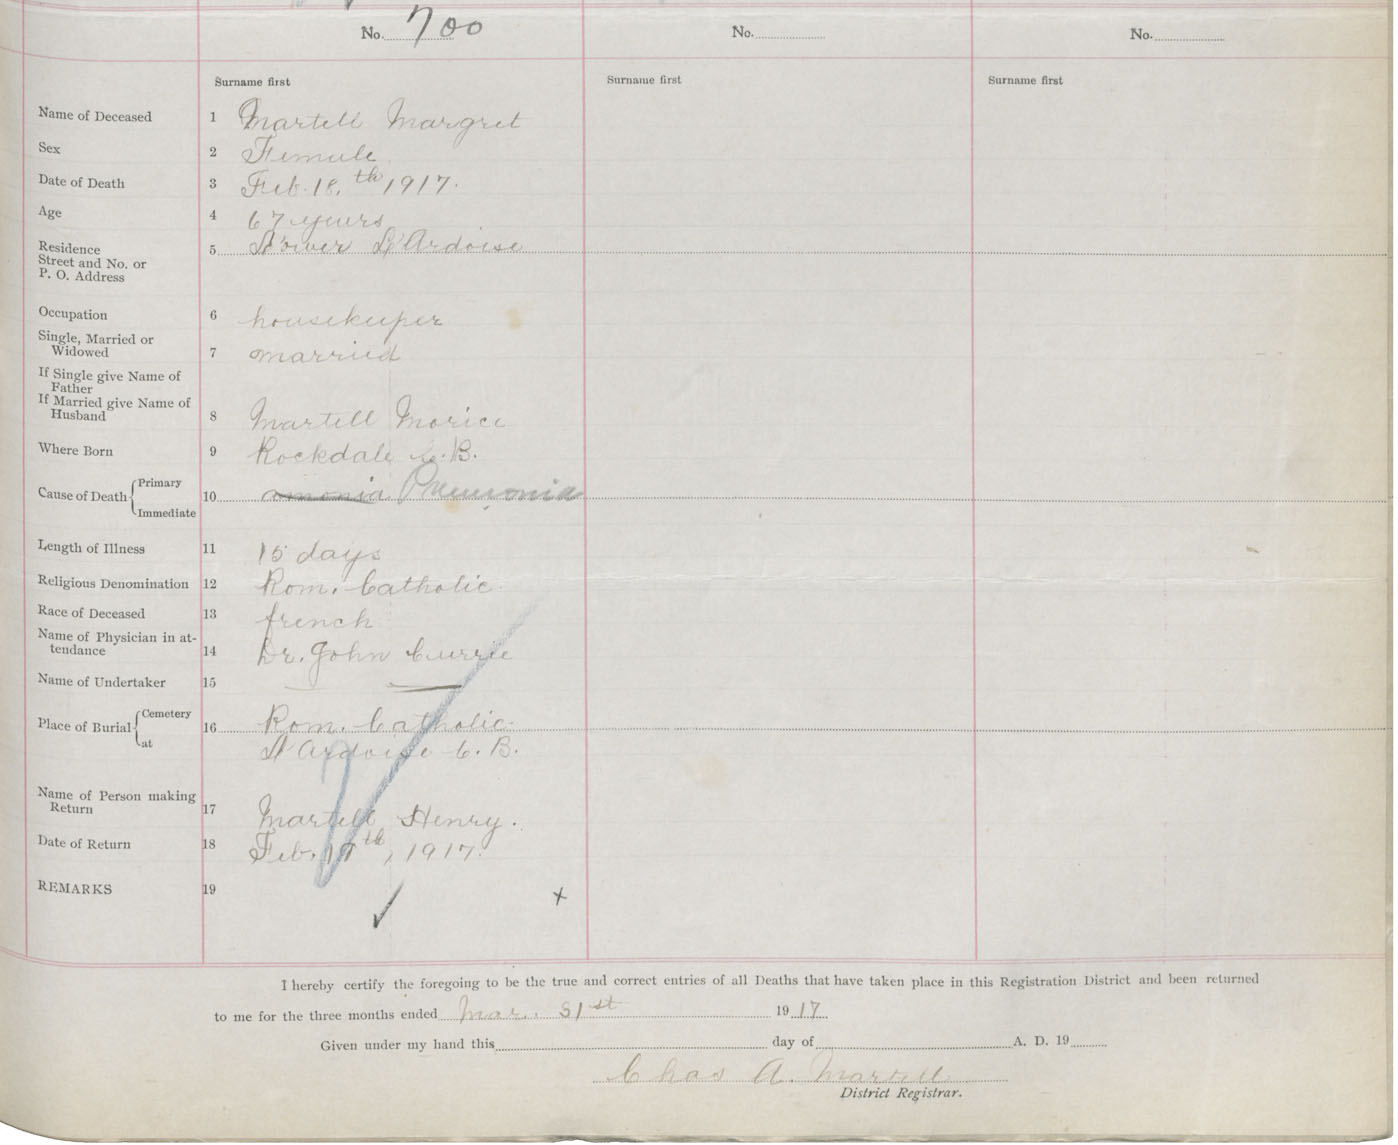 No. 700 No. No.
Surname first Surname first Surname first
Name of Deceased 1 Martell Margret
Sex 2 Female
Date of Death 3 Feb. 18.th 1917.
Age 4 67 years
Residence
Street and No. or 5 L'Ardoise
P. O. Address
Occupation 6 housekeeper
Single, Married or
Widowed 7 married
If Single give Name of
Father
If Married give Name of
Husband 8 Martell Morice
Where Born 9 Rockdale C.B.
Cause of Death { Primary
10 amonia Pneumonia
Immediate
Length of Illness 11 15 days
Religious Denomination 12 Rom. Catholic.
Race of Deceased 13 french
Name of Physician in at-
tendance 14 Dr. John Currie
Name of Undertaker 15 —
Place of Burial { Cemetery
16 Rom. Catholic.
at L'Ardoise C. B.
Name of Person making
Return 17 Martell Henry.
Date of Return 18 Feb. 19th, 1917.
REMARKS 19
I hereby certify the foregoing to be the true and correct entries of all Deaths that have taken place in this Registration District and been returned
to me for the three months ended Mar. 31st 1917
Given under my hand this day of A. D. 19
Chas A. Martell
District Registrar.